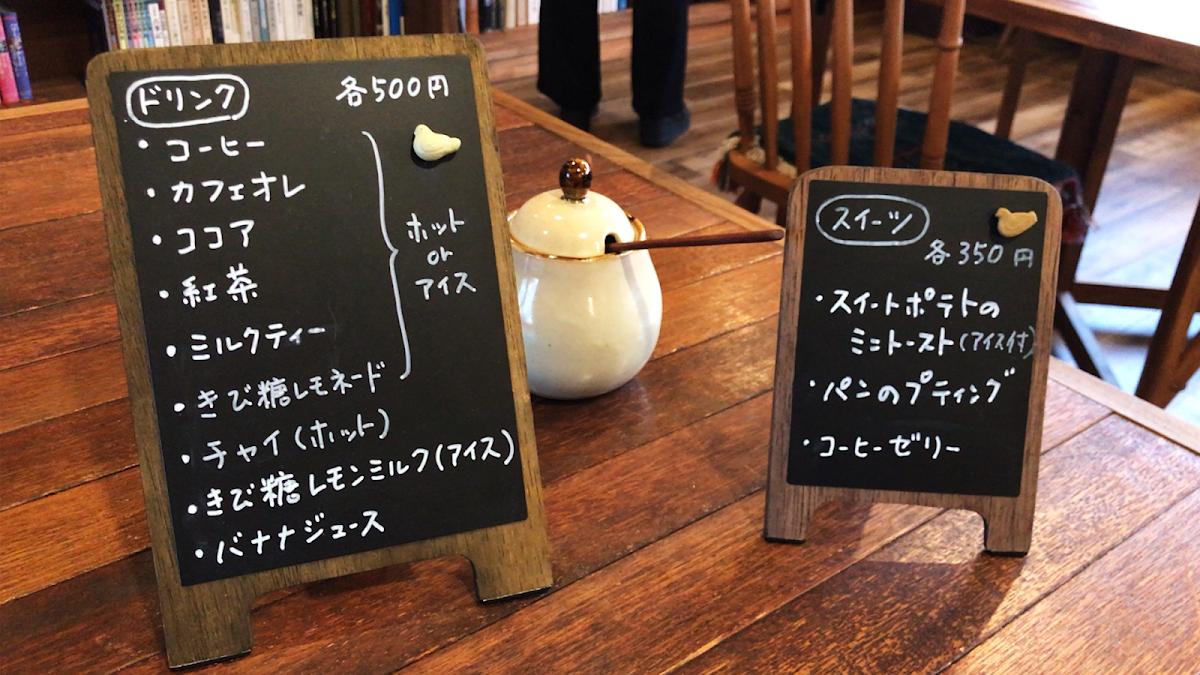 ドリンク 各500円
・コーヒー
・カフェオレ
・ココア
・紅茶
・ミルクティー
・きび糖レモネード
ホット
or
アイス
・チャイ(ホット)
・きび糖レモンミルク(アイス)
・バナナジュース
スイーツ
各350円
・スイートポテトの
ミニトースト(アイス付)
・パンのプティング
・コーヒーゼリー